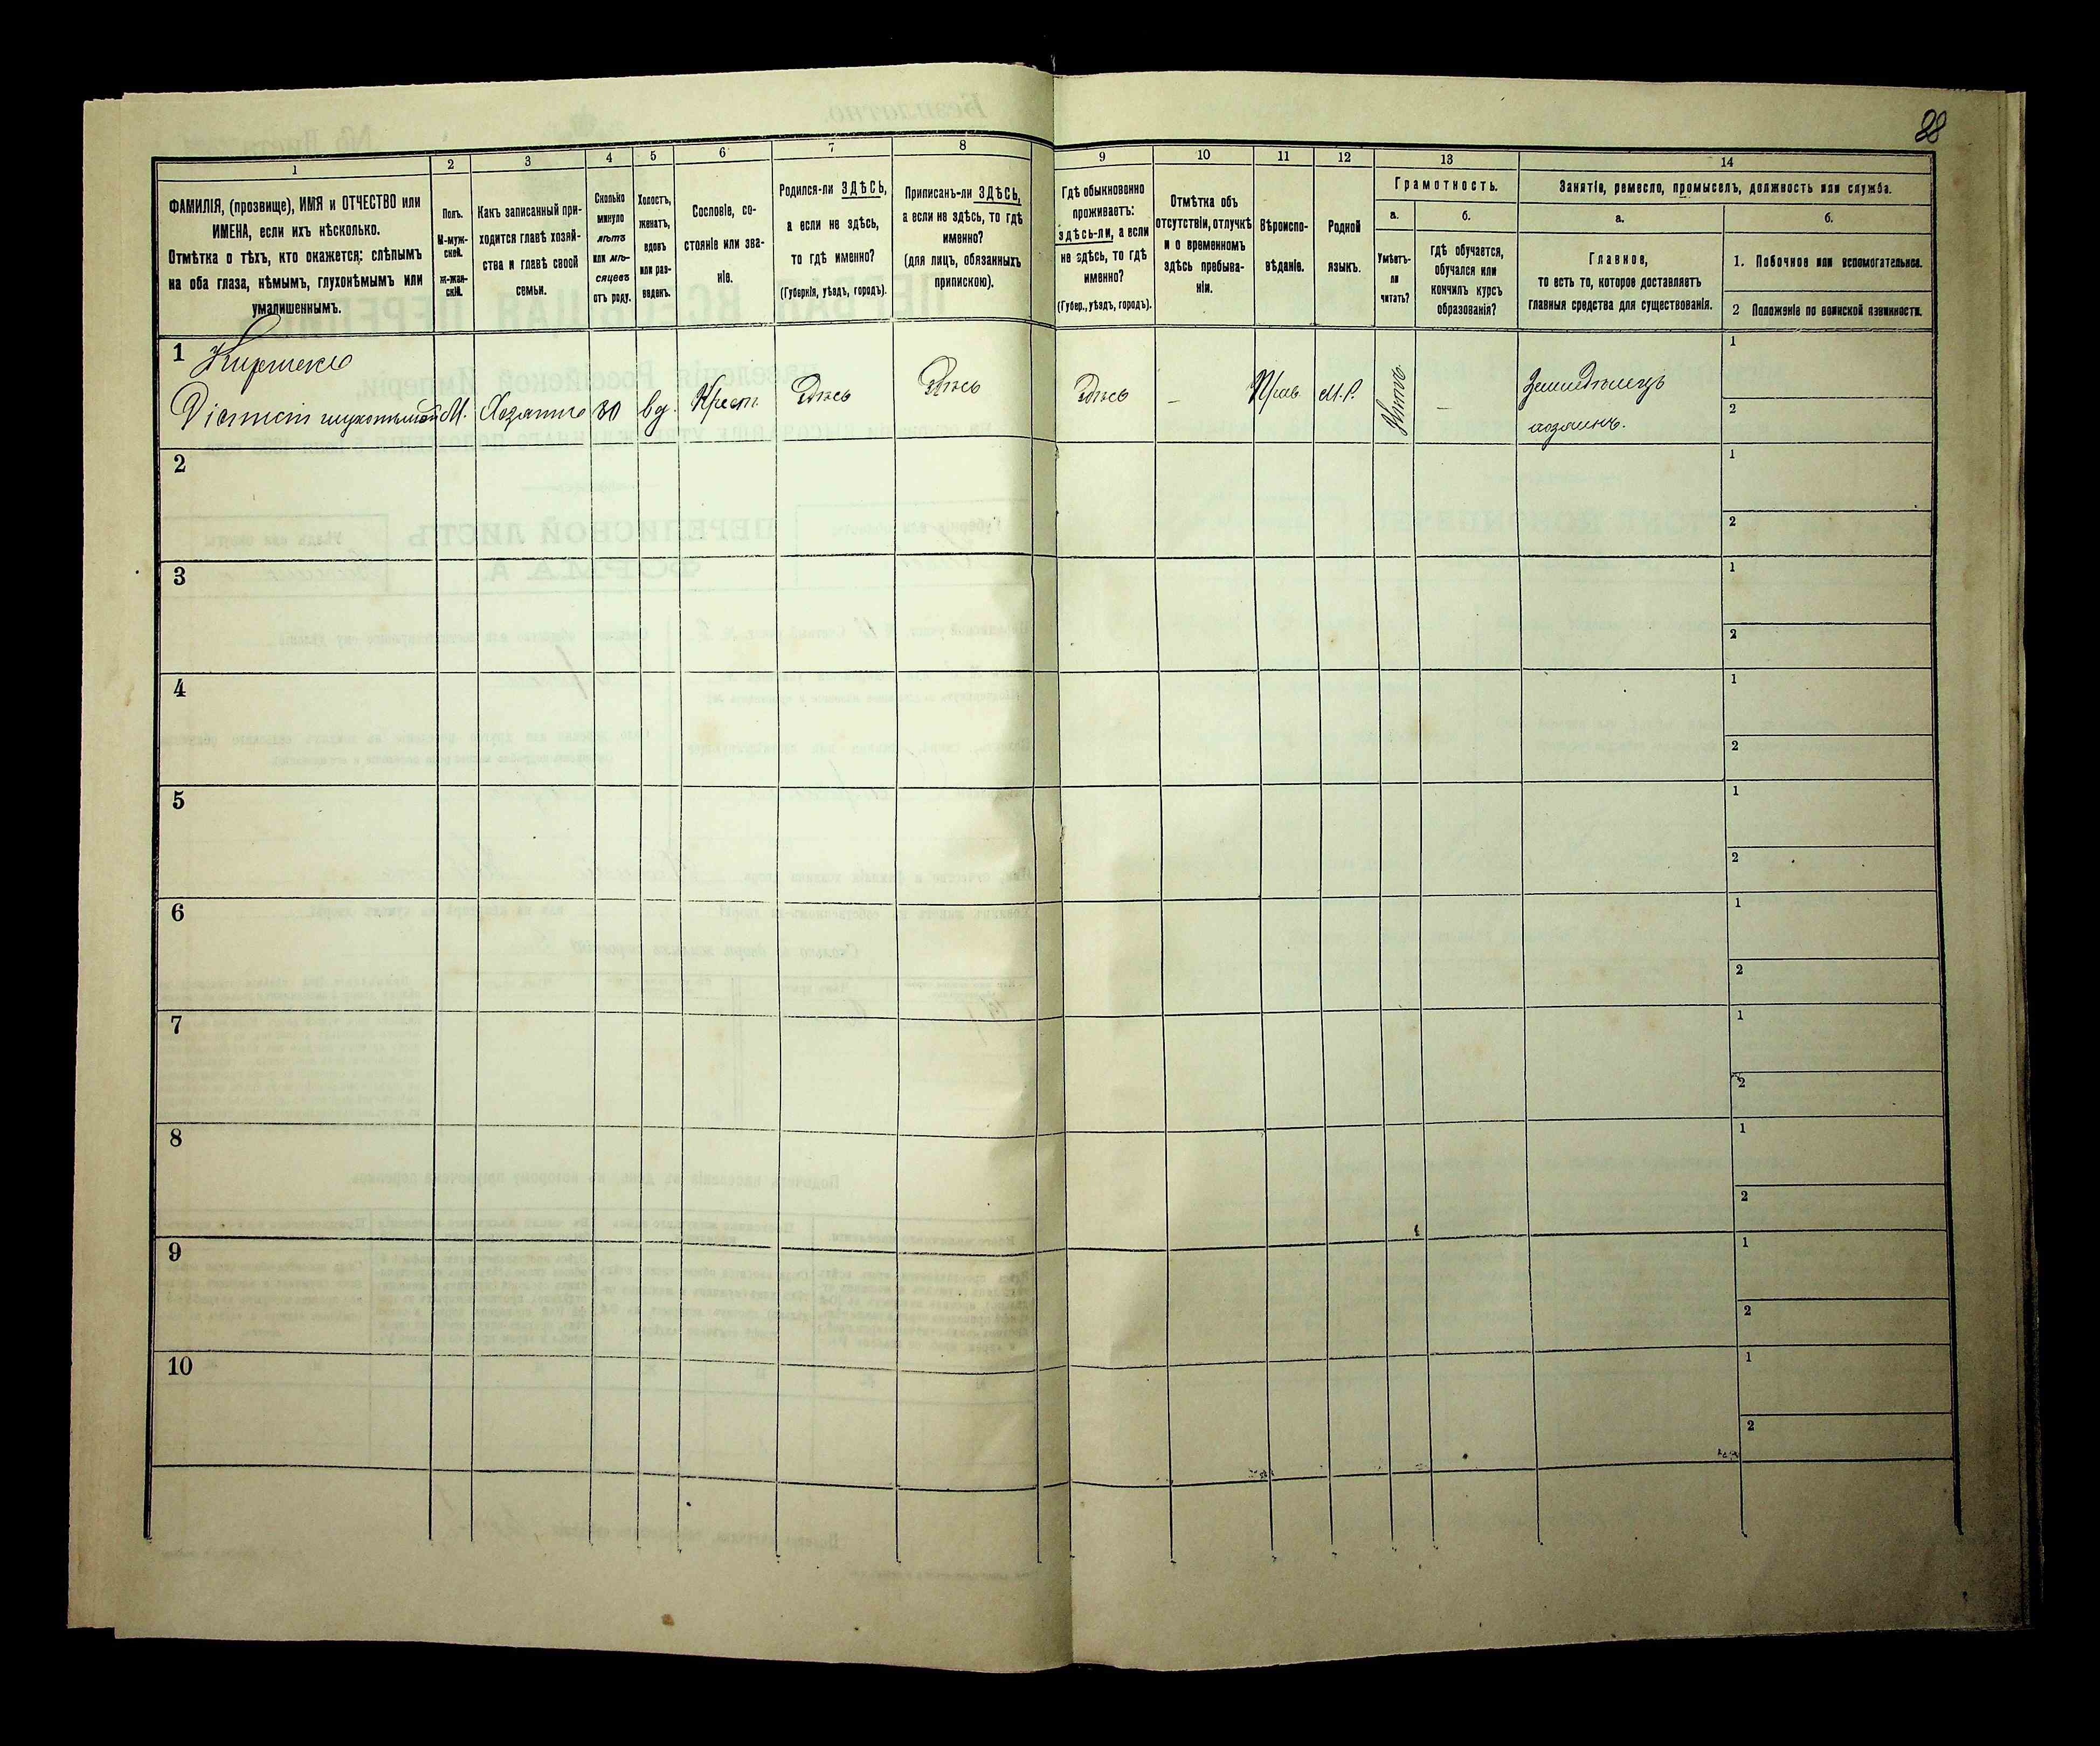 88
1
2
3
4
5
6
7
8
9
10
11
12
13
14
ФАМИЛІЯ, (прозвище), ИМЯ и ОТЧЕСТВО или
ИМЕНА, если ихъ нѣсколько.
Отмѣтка о тѣхъ, кто окажется: слѣпымъ
на оба глаза, нѣмымъ, глухонѣмымъ или
умалишеннымъ.
Полъ.
М-муж-
ской.
ж-жен-
скій.
Какъ записанный при-
ходится главѣ хозяй-
ства и главѣ своей
семьи.
Сколько
минуло
лѣтъ
или мѣ-
сяцевъ
отъ роду.
Холостъ,
женатъ,
вдовъ
или раз-
веденъ.
Сословіе, со-
стояніе или зва-
ніе.
Родился-ли ЗДѢСЬ,
а если не здѣсь,
то гдѣ именно?
(Губернія, уѣздъ, городъ).
Приписанъ-ли ЗДѢСЬ,
а если не здѣсь, то гдѣ
именно?
(для лицъ, обязанныхъ
припискою).
Гдѣ обыкновенно
проживаетъ:
здѣсь-ли, а если
не здѣсь, то гдѣ
именно?
(Губер., уѣздъ, городъ).
Отмѣтка объ
отсутствіи, отлучкѣ
и о временномъ
здѣсь пребыва-
ніи.
Вѣроиспо-
вѣданіе.
Родной
языкъ.
Грамотность.
а.
Умѣетъ-
ли
читать?
б.
гдѣ обучается,
обучался или
кончилъ курсъ
образованія?
Занятіе, ремесло, промыселъ, должность или служба.
а.
Главное,
то есть то, которое доставляетъ
главныя средства для существованія.
б.
1. Побочное или вспомогательное.
2 Положеніе по воинской повинности.
1
М.
80
вд.
Крест.
Здѣсь
Здѣсь
Здѣсь
—
Прав.
М.Р.
—
Земледѣлецъ
хозяинъ.
1
2
2
1
2
3
1
2
4
1
2
5
1
2
6
1
2
7
1
2
8
1
2
9
1
2
10
1
2